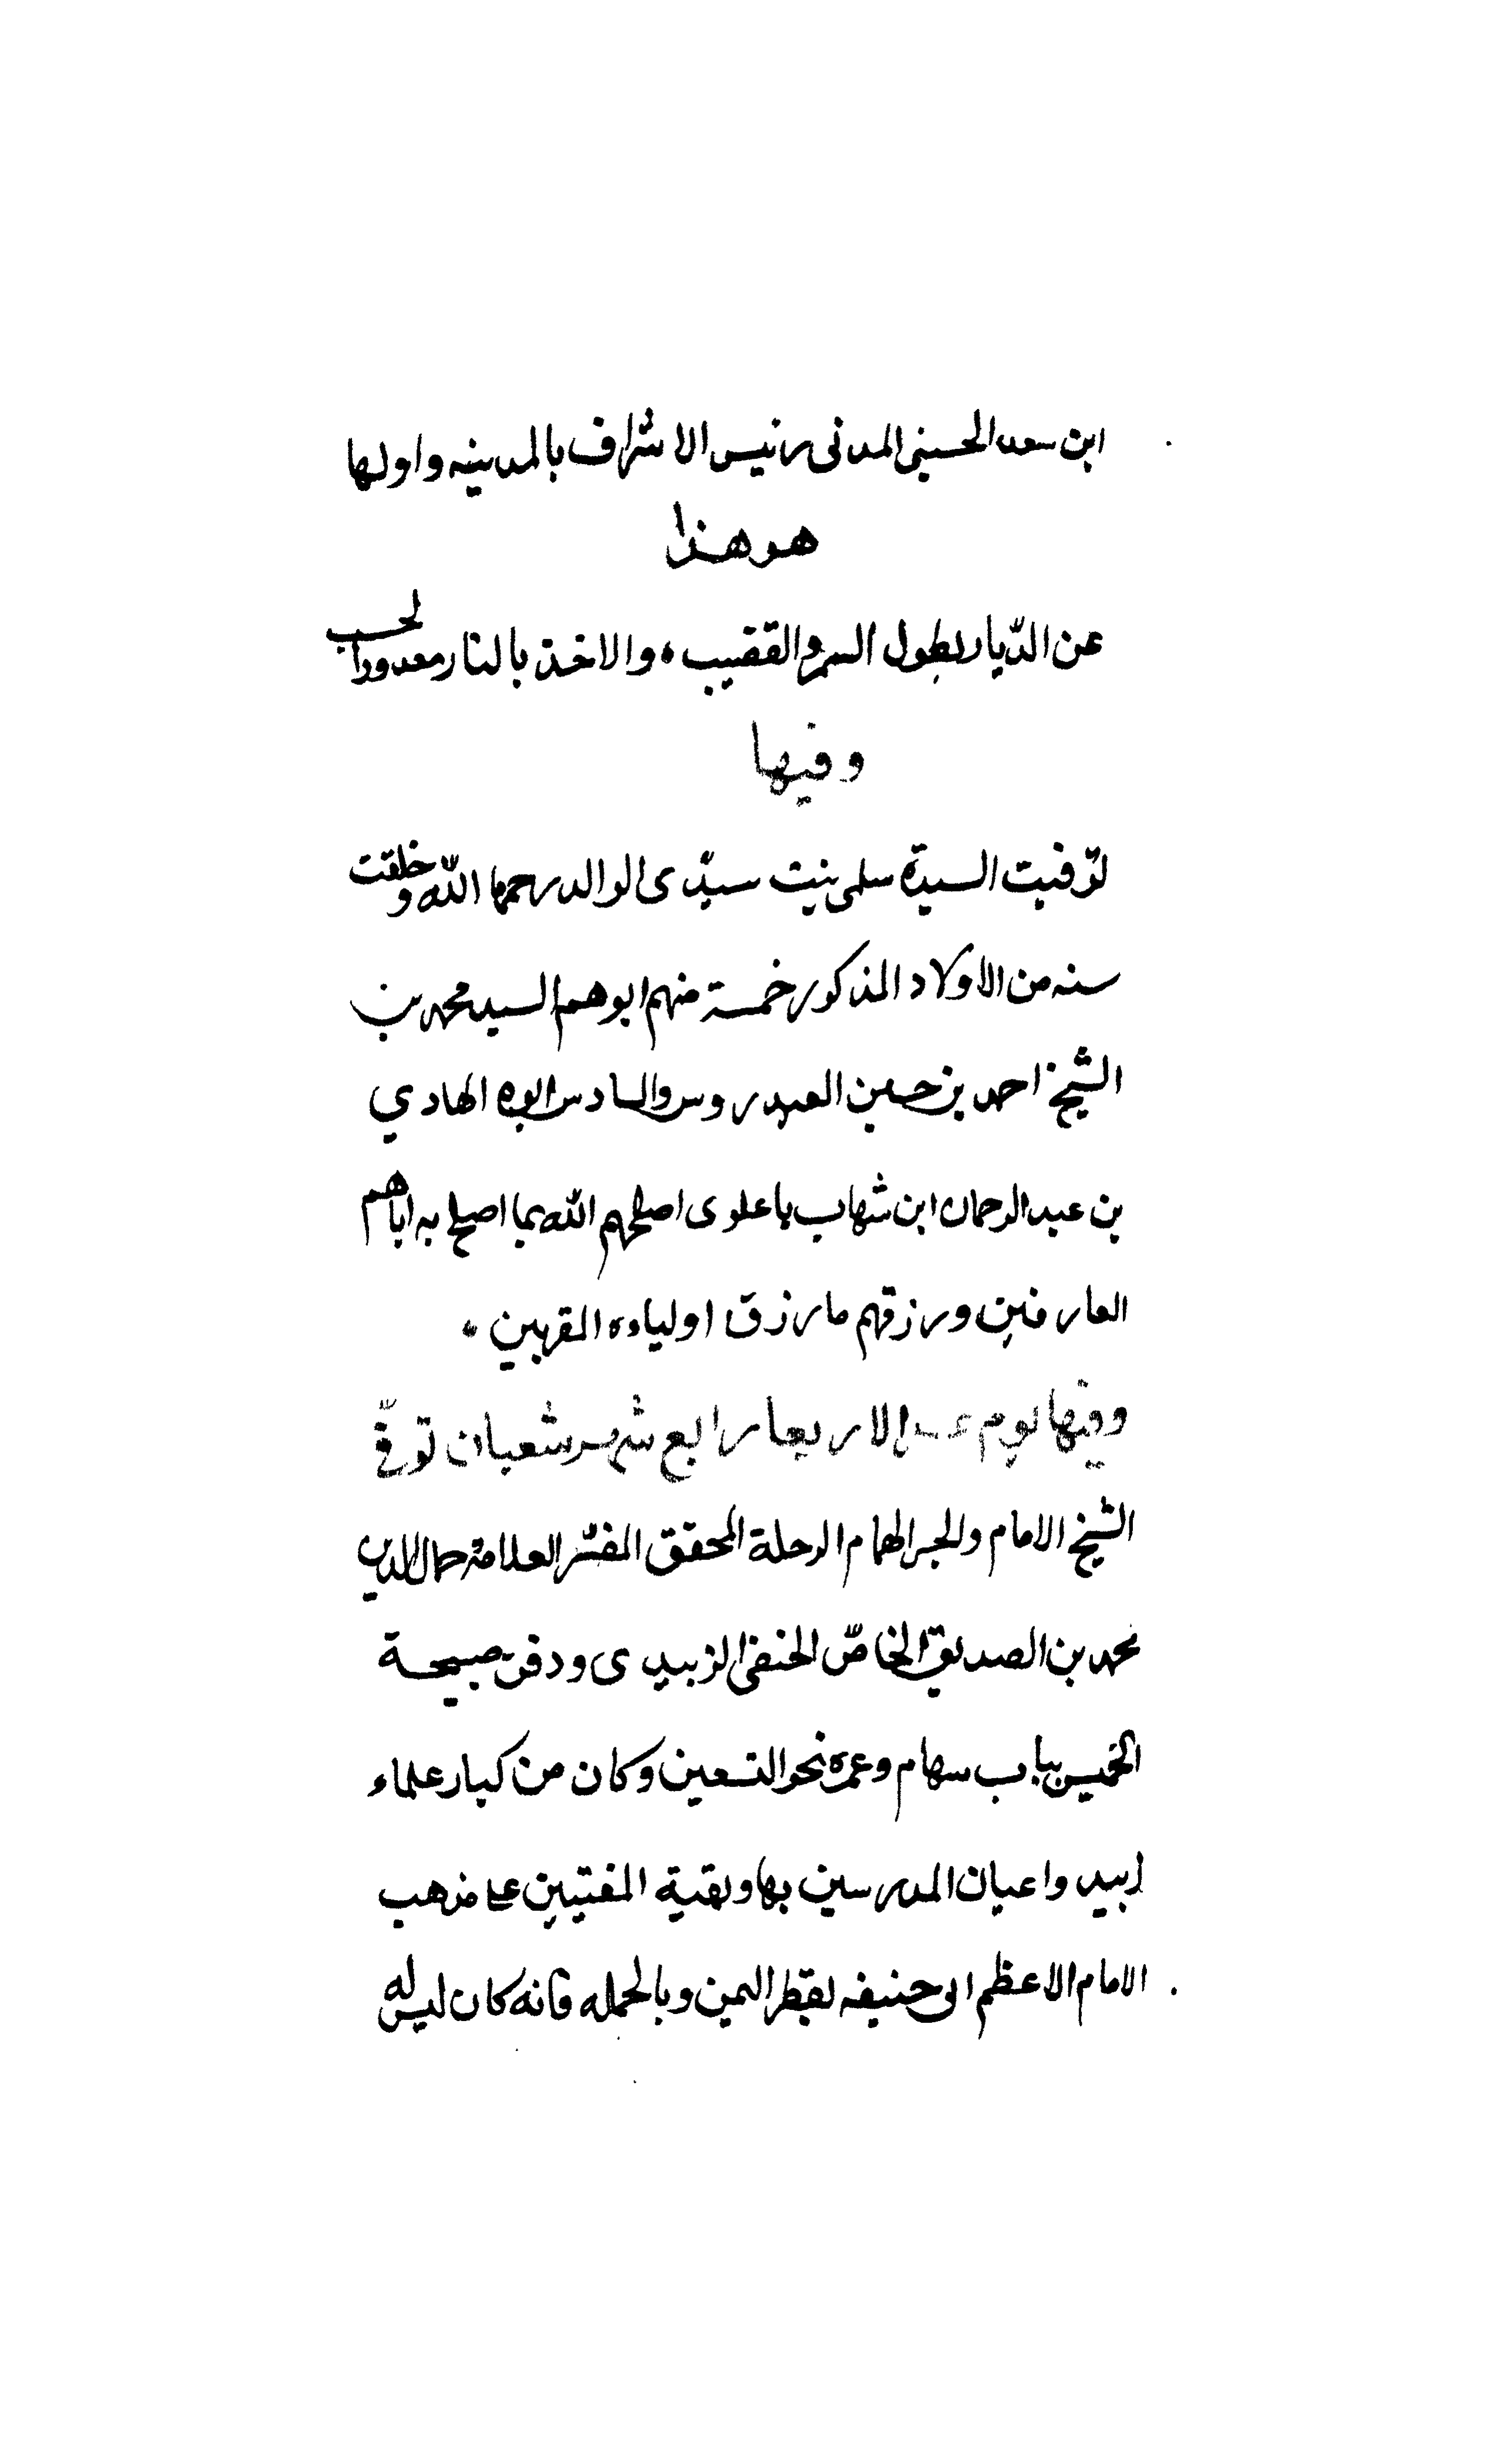 ابن سعد الحسيني المدني رئيس الاشراف بالمدينه واولها
هو هذا
عن الديار بطول السمر والقضيب، والاخذ بالثار معدودا لحب
وفيها
توفيت السيدة سلمى بنت سيّدى الوالد رحمها اللّه وخلفت
سته من الأولاد المذكور خمسة منهم ابوهم السيد محمد بن
الشيخ احمد بن حسين العيدروس والسادس ابوه الهادي
بن عبد الرحمان ابن شهاب باعلوى اصلحهم اللّه بما اصلح به اباهم
العارفين ورزقهم ما رزق اولياءه المقربين .
وفيها يوم الاربعا رابع شهر شعبان توفّي
الشيخ الامام والحبر الهمام الرحلة المحقق المفسّر العلامة جمال الدين
محمد بن الصديق الخاصّ الحنفي الزبيدى ودفن صبيحة
الخميس بباب سهام وعمره نحو التسعين وكان من كبار علماء
زبيد واعيان المدرسين بها وبقية المفتيين على مذهب
الامام الاعظم ابى حنيفه بقطر اليمن وبالجمله فانه كان ليس له